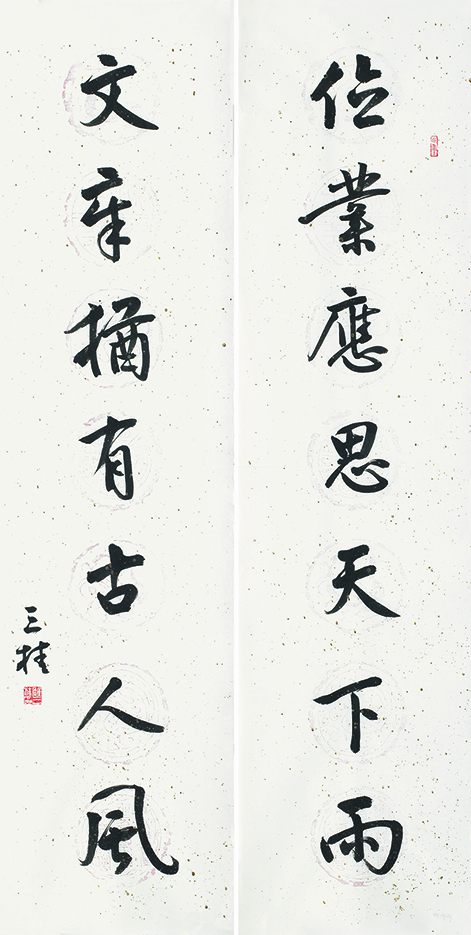 德業應思天下雨
文章猶有古人風
三桂